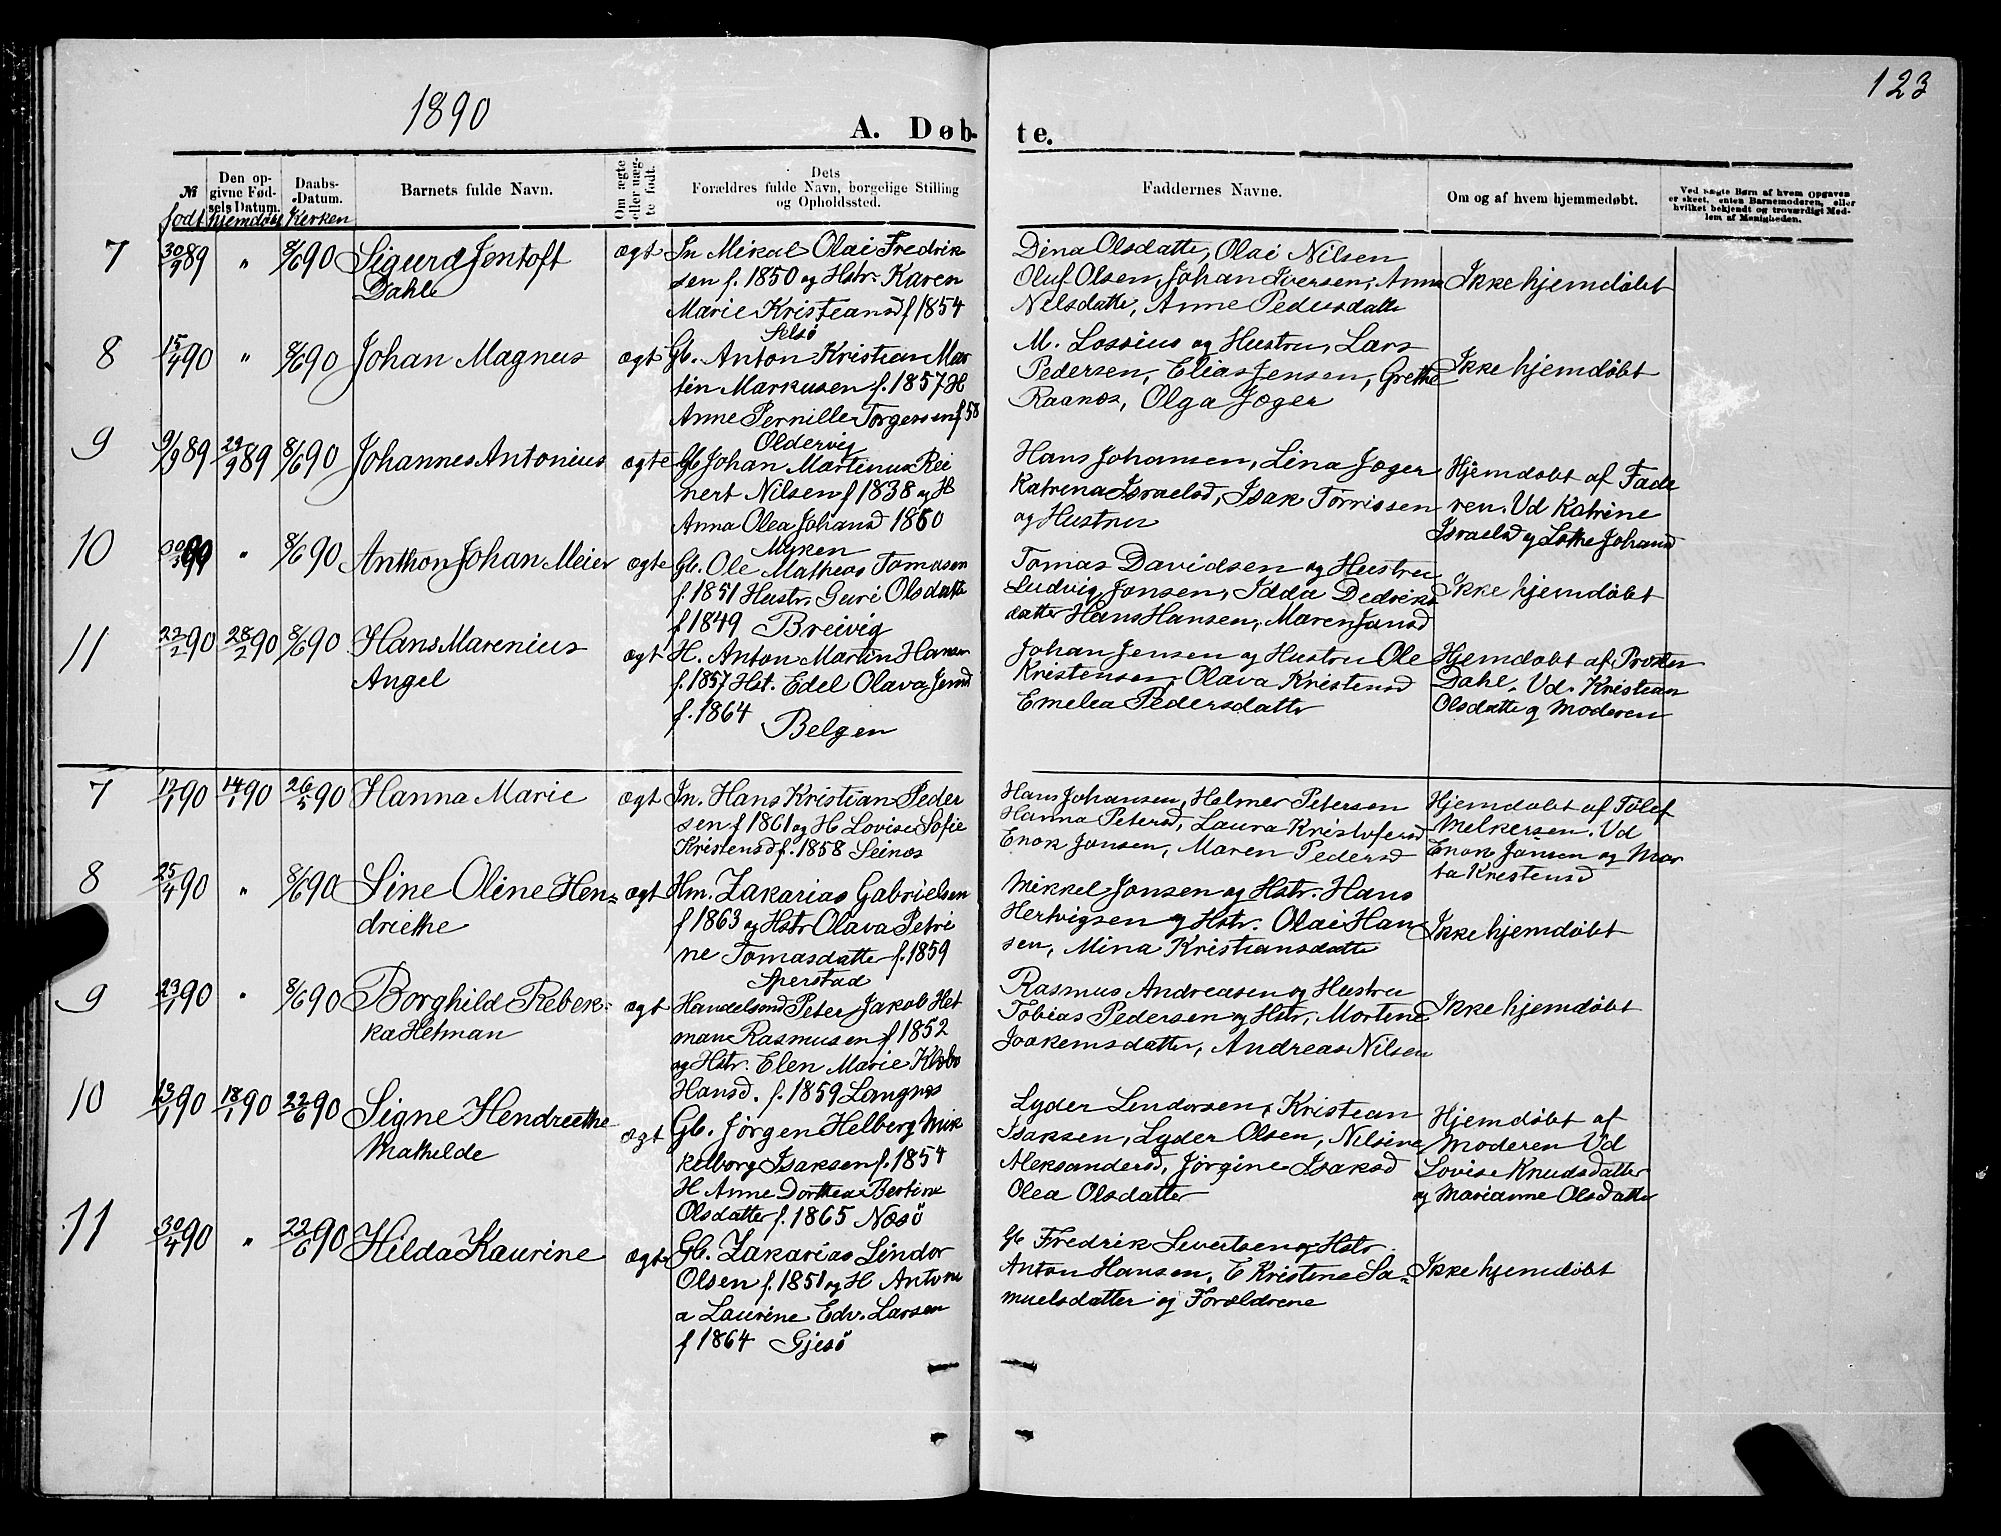 123
1890
A. Døb-
te.
№
født
Den op-
givne Fød-
sels Datum.
hjemdøbt
Daabs-
Datum.
Kirken
Barnets fulde Navn.
Om ægte
eller uæg-
te født.
Dets
Forældres fulde Navn, borgelige Stilling
og Opholdssted.
Faddernes Navne.
Om og af hvem hjemmedøbt.
Ved uægte Børn af hvem Opgaven
er skeet, enten Barnemoderen, eller
hvilket bekjendt og troværdigt Med-
lem af Menigheden.
7
30/9 89
"
8/6 90
Sigurd Jentoft
Dahle
ægt
In Mikal Olai Fredrik
sen f. 1850 og Hstr. Karen
Marie Kristiansd f 1854
Selsö
Dina Olsdatte, Olai Nilsen
Oluf Olsen, Johan Iversen, Anna
Nilsdatte, Anne Pedersdatte
Ikke hjemdøbt
8
15/4 90
"
8/6 90
Johan Magnus
ægt
Gb. Anton Kristian Mar
tin Markusen f. 1857 H
Anne Pernille Torgersen f. 58
Oldervig
M. Lossius og Hustru, Lars
Pedersen, Elias Jensen, Grethe
Raanes, Olga Jæger
Ikke hjemdøbt
9
9/9 89
29/9 89
8/6 90
Johannes Antonius
ægte
Gb Johan Martinus Rei
nert Nilsen f 1838 og H
Anna Olea Johansd 1850
Myken
Hans Johansen, Lina Jæger
Katrina Israelsd, Isak Torrissen
og Hustru
Hjemdøbt af Fade
ren. Vd Katrine
Israelsd og Lothe Johansd
10
90
"
8/6 90
Anthon Johan Meier
ægte
Gb. Ole Matheas Tomasen
f. 1851 Hustr. Guri Olsdatte
f 1849 Breivig
Tomas Davidsen og Hustru
Ludvig Jonsen, Idda Dedriks
datter Hans Hansen, Maren Jansd
Ikke hjemdøbt
11
22/2 90
28/2 90
8/6 90
Hans Marenius
Angel
ægt
H. Anton Martin Hansen
f. 1857 Hst. Edel Olava Jensd
f. 1864 Belgen
Johan Jensen og Hustru Ole
Kristensen, Olava Kristensd
Emelia Pedersdatte
Hjemdøbt af Prosten
Dahl. Vd. Kristian
Olsdatte og Moderen
7
12/1 90
14/1 90
26/5 90
Hanna Marie
ægt
In. Hans Kristian Peder
sen f 1861 og H Lovise Sofie
Kristensd f. 1858 Seines
Hans Johansen, Helmer Petersen
Hanna Petersd, Laura Kristofersd
Enok Jonsen, Maren Pedersd
Hjemdøbt af Tolef
Melkersen. Vd
Enok Jonsen og Mar
ta Kristensd
8
25/4 90
"
8/6 90
Sine Oline Hen=
driethe
ægt
Hm. Zakarias Gabrielsen
f 1863 og Hstr Olava Petri
ne Tomasdatte f. 1859
Sperstad
Mikkel Jonsen og Hstr. Hans
Hertvigsen og Hstr. Olai Han
sen, Mina Kristiansdatte
Ikke hjemdøbt
9
23/1 90
"
8/6 90
Borghild Rebek=
ka Hetman
ægt
Handelsmd Peter Jakob Het
man Rasmusen f 1852
og Hstr. Elen Marie Klæbo
Hansd. f. 1859 Langnes
Rasmus Andreasen og Hustru
Tobias Pedersen og Hstr, Mortine
Joakemsdatte, Andreas Nilsen
Ikke hjemdøbt
10
13/1 90
18/1 90
22/6 90
Signe Hendriethe
Mathilde
ægt
Gb. Jörgen Helberg Mik
kelborg Isaksen f. 1854
H Anne Dorthea Bertine
Olsdatter f. 1865 Næsö
Lyder Lendorsen, Kristian
Isaksen, Lyder Olsen, Nilsine
Aleksandersd, Jörgine Isaksd
Olea Olsdatter
Hjemdøbt af
Moderen Vd
Lovise Knudsdatter
og Marianne Olsdatte
11
30/4 90
"
22/6 90
Hilda Kaurine
ægte
Gb. Zakarias Lindor
Olsen f. 1851 og H Antone
a Laurine Edv. Larsen
f 1864 Gjesö
Gb Fredrik Sivertsen og Hstr
Anton Hansen, E Kristine Sa=
muelsdatter og Forældrene
Ikke hjemdøbt